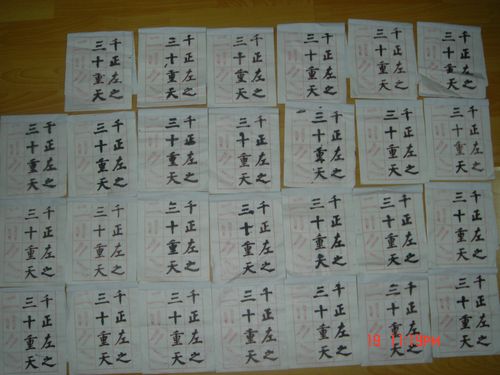 千正左之
三十重天
千正左之
三十重天
千正左之
三十重天
千正左之
三十重天
千正左之
三十重天
千正左之
三十重天
千正左之
三十重天
千正左之
三十重天
千正左之
三十重天
千正左之
三十重天
千正左之
三十重天
千正左之
三十重天
千正左之
三十重天
千正左之
三十重天
千正左之
三十重天
千正左之
三十重天
千正左之
三十重天
千正左之
三十重天
千正左之
三十重天
千正左之
三十重天
千正左之
三十重天
千正左之
三十重天
千正左之
三十重天
千正左之
三十重天
千正左之
三十重天
千正左之
三十重天
千正左之
三十重天